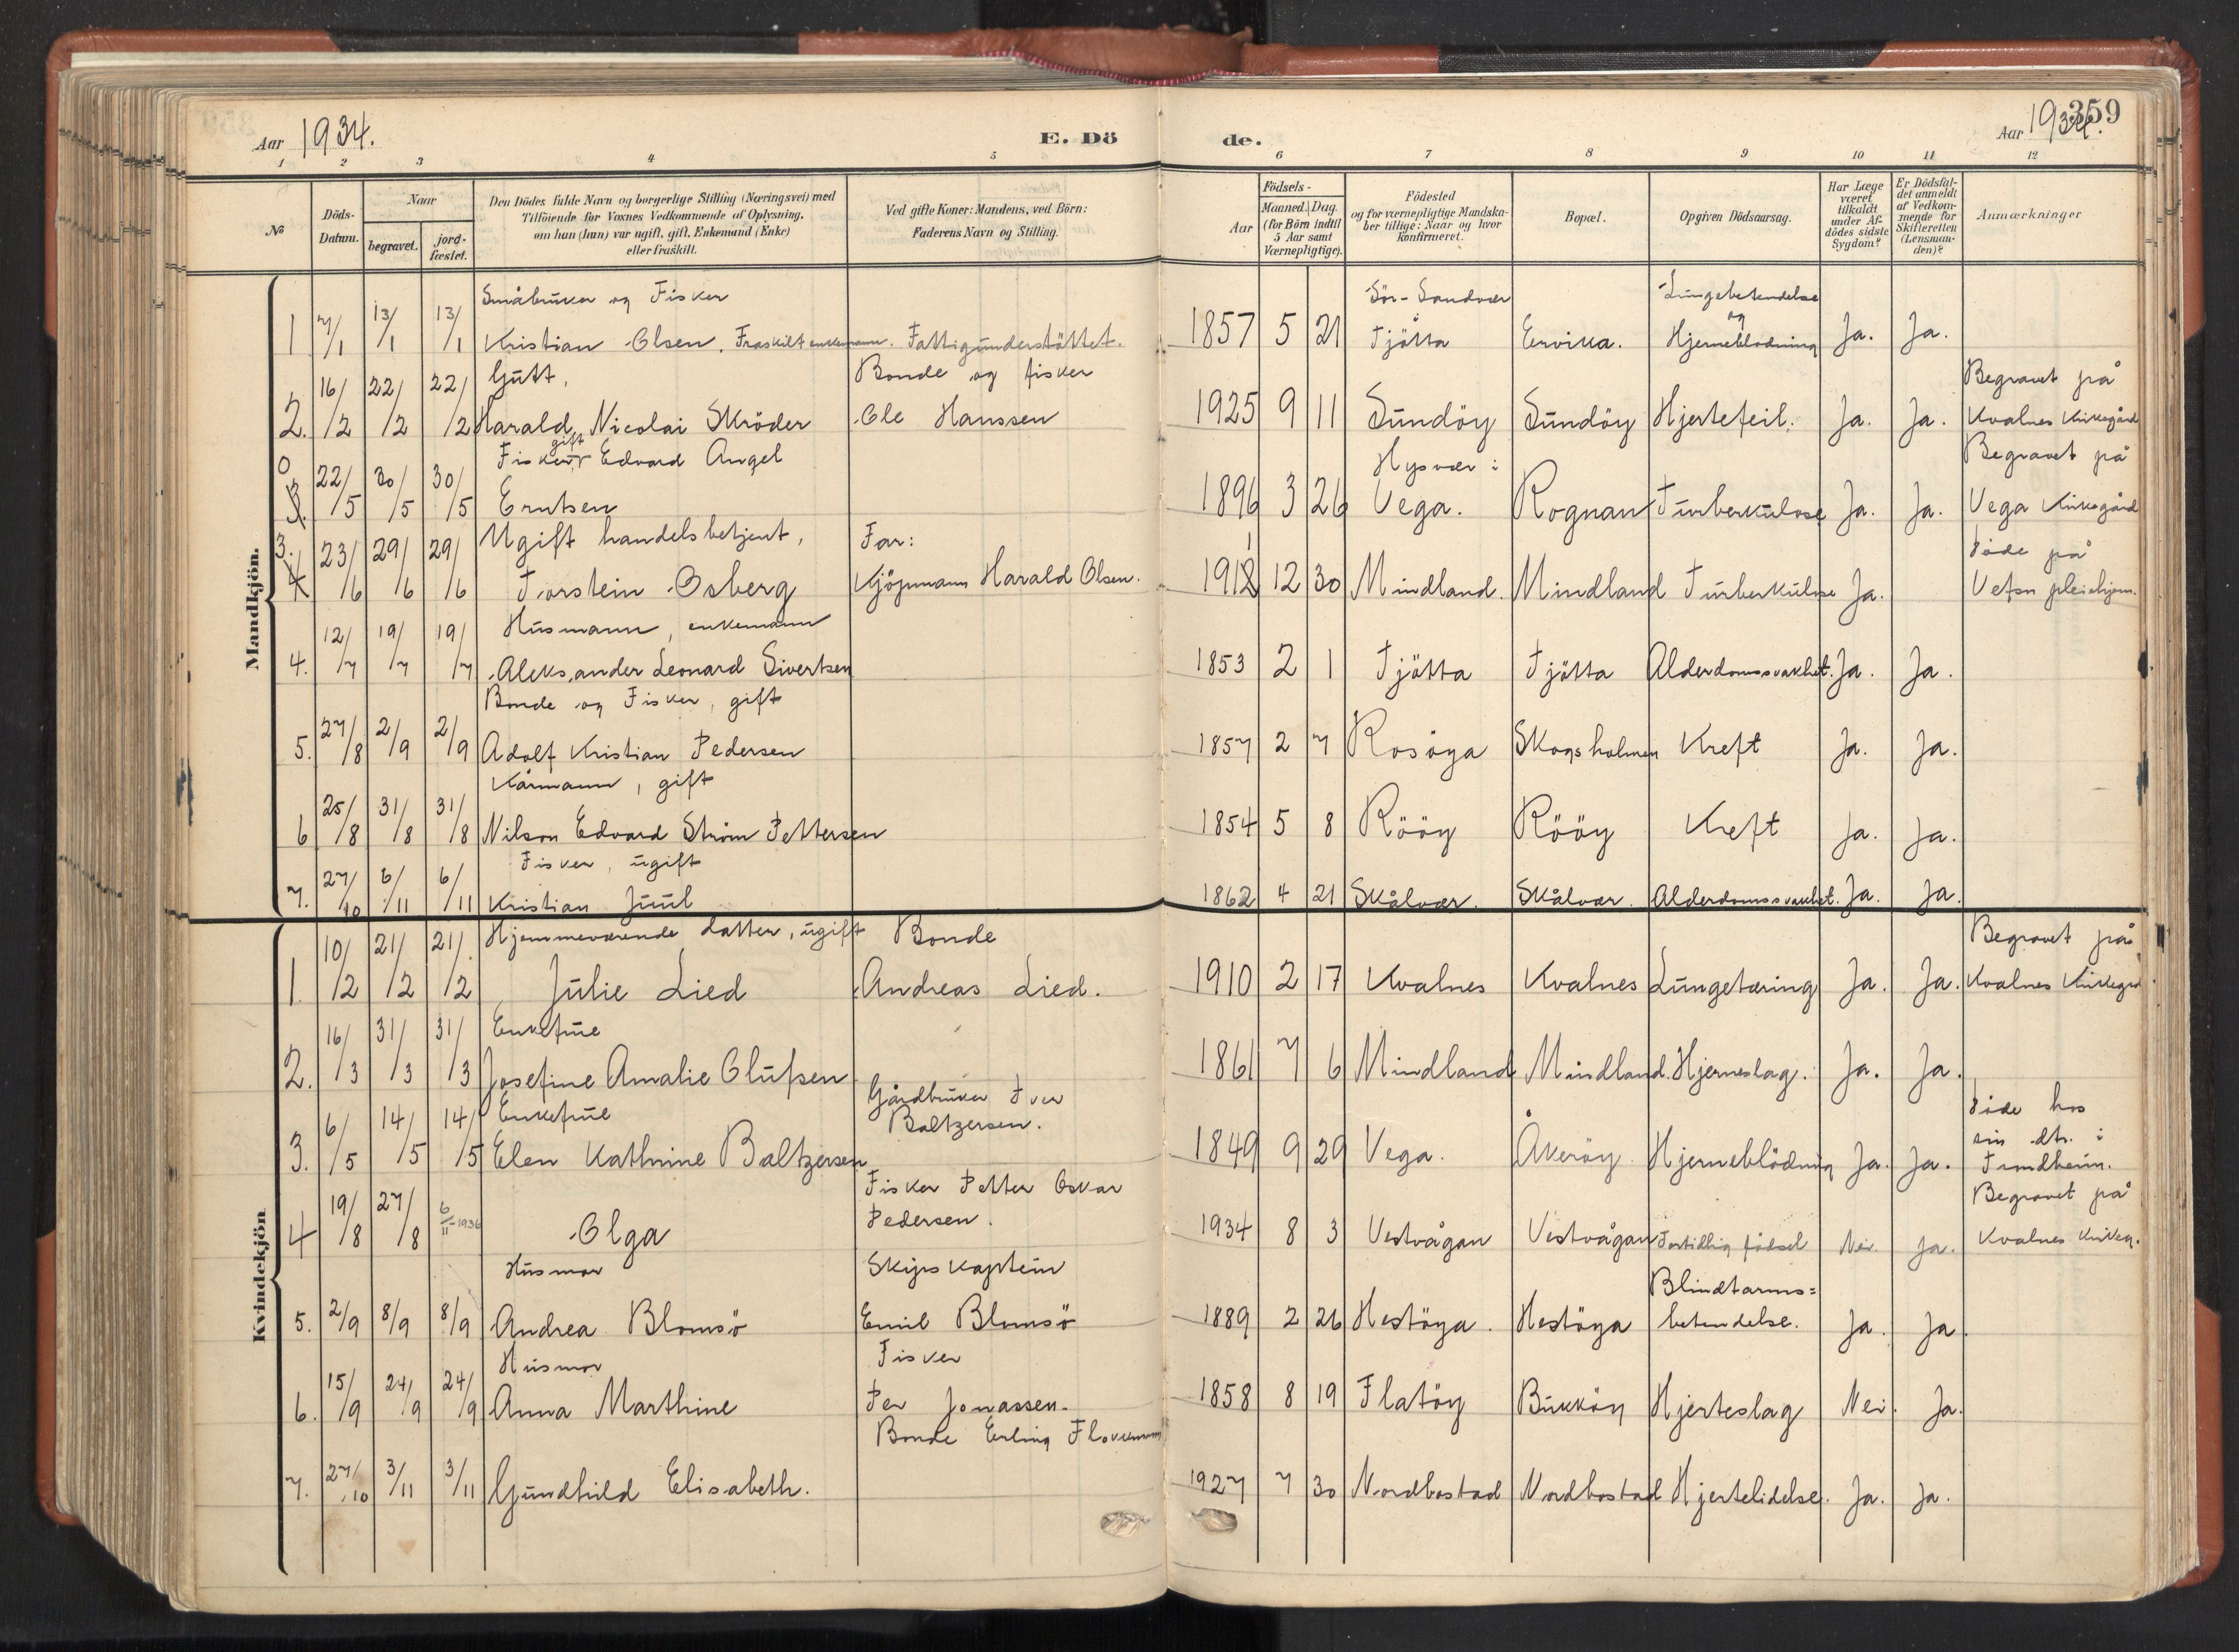 Aar 1934.
E. Dö
de.
Aar 1934.
359
1 2 3 4 5 6 7 8 9 10 11 12
No
Döds-Datum.
Naar
begravet.
jord-fæstet.
Den Dödes fulde Navn og borgerlige Stilling (Næringsvei) med
Tilföiende for Voxnes Vedkommende af Oplysning,
om han (hun) var ugift, gift, Enkemand (Enke)
eller fraskilt.
Ved gifte Koner: Mandens, ved Börn:
Faderens Navn og Stilling.
Aar
Födsels-
Maaned. Dag.
(for Börn indtil
5 Aar samt
Værnepligtige).
Födested
og for værnepligtige Mandska-
ber tillige: Naar og hvor
Konfirmeret.
Bopæl.
Opgiven Dödsaarsag.
Har Læge
været
tilkaldt
under Af-
dödes sidste
Sygdom?
Er Dödsfal-
det anmeldt
af Vedkom-
mende for
Skifteretten
(Lensman-
den)?
Anmærkninger
Mandkjön.
Småbruker og Fisker Sör-Sandvær Lungebetendelse
og
1 7/1 13/1 13/1 Kristian Olsen. Fraskilt enkemann. Fattigunderstöttet. 1857 5 21 Tjötta Ervika. Hjerneblödning Ja. Ja.
Gutt, Bonde og fisker Begravet på
2. 16/2 22/2 22/2 Harald Nicolai Skröder Ole Hanssen 1925 9 11 Sundöy Sundöy Hjertefeil. Ja. Ja. Kvalnes Kirkegård
gift
Fisker Edvard Angel Hysvær i Begravet på
0 3. 22/5 30/5 30/5 Erntsen 1896 3 26 Vega. Rognan Turberkulose Ja. Ja. Vega Kirkegård
Ugift handelsbetjent, Far: 1 Döde på
3. 4 23/6 29/6 29/6 Torstein Osberg Kjöpmann Harald Olsen. 1912 12 30 Mindland. Mindland Turberkulose Ja. Vefsn pleiehjem.
Husmann, enkemann
4. 12/7 19/7 19/7 Aleksander Leonard Sivertsen 1853 2 1 Tjötta Tjötta Alderdomssvakhet. Ja. Ja.
Bonde og Fisker, gift
5. 27/8 2/9 2/9 Adolf Kristian Pedersen 1857 2 7 Rosöya Skogsholmen Kreft Ja. Ja.
Kårmann, gift
6 25/8 31/8 31/8 Nilson Edvard Ström Pettersen 1854 5 8 Rööy Rööy Kreft Ja. Ja.
Fisker, ugift
7. 27/10 6/11 6/11 Kristian Juul 1862 4 21 Skålvær. Skålvær. Alderdomssvakhet. Ja. Ja.
Kvindekjön
Hjemmeværende datter, ugift Bonde Begravet på
1. 10/2 21/2 21/2 Julie Lied Andreas Lied. 1910 2 17 Kvalnes Kvalnes Lungetæring Ja. Ja. Kvalnes Kirkegrd
Enkefrue
2. 16/3 31/3 31/3 Josefine Amalie Olufsen 1861 7 6 Mindland Mindland. Hjerneslag. Ja. Ja.
Enkefrue Gårdbruker Iver Döde hos
Baltzersen. sin dtr. i
3. 6/5 14/5 14/5 Elen Kathrine Baltzersen 1849 9 29 Vega. Åkeröy Hjerneblödning Ja. Ja. Trondheim.
Fisker Petter Oskar Begravet på
4 19/8 27/8 6/11-1936 Olga Pedersen. 1934 8 3 Vestvågan Vestvågan Fortidlig födsel Nei. Ja. Kvalnes Kirkeg.
Husmor Skipskaptein Blindtarms=
5. 2/9 8/9 8/9 Andrea Blomsö Emil Blomsö 1889 2 26 Hestöya. Hestöya betendelse. Ja. Ja.
Husmor Fisker
6. 15/9 24/9 24/9 Anna Marthine Per Jonassen. 1858 8 19 Flatöy Bukköy Hjerteslag Nei. Ja.
Bonde Erling Flovkmann
7. 27/10 3/11 3/11 Gundhild Elisabeth. 1927 7 30 Nordbostad Nordbostad Hjertelidelse. Ja. Ja.